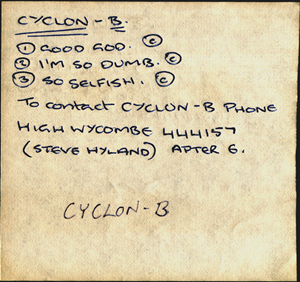 CYCLON-B.
① GOOD GOD. ©
② I'M SO DUMB. ©
③ SO SELFISH. ©
TO CONTACT CYCLON-B PHONE
HIGH WYCOMBE 444157
(STEVE HYLAND) AFTER 6.
CYCLON-B